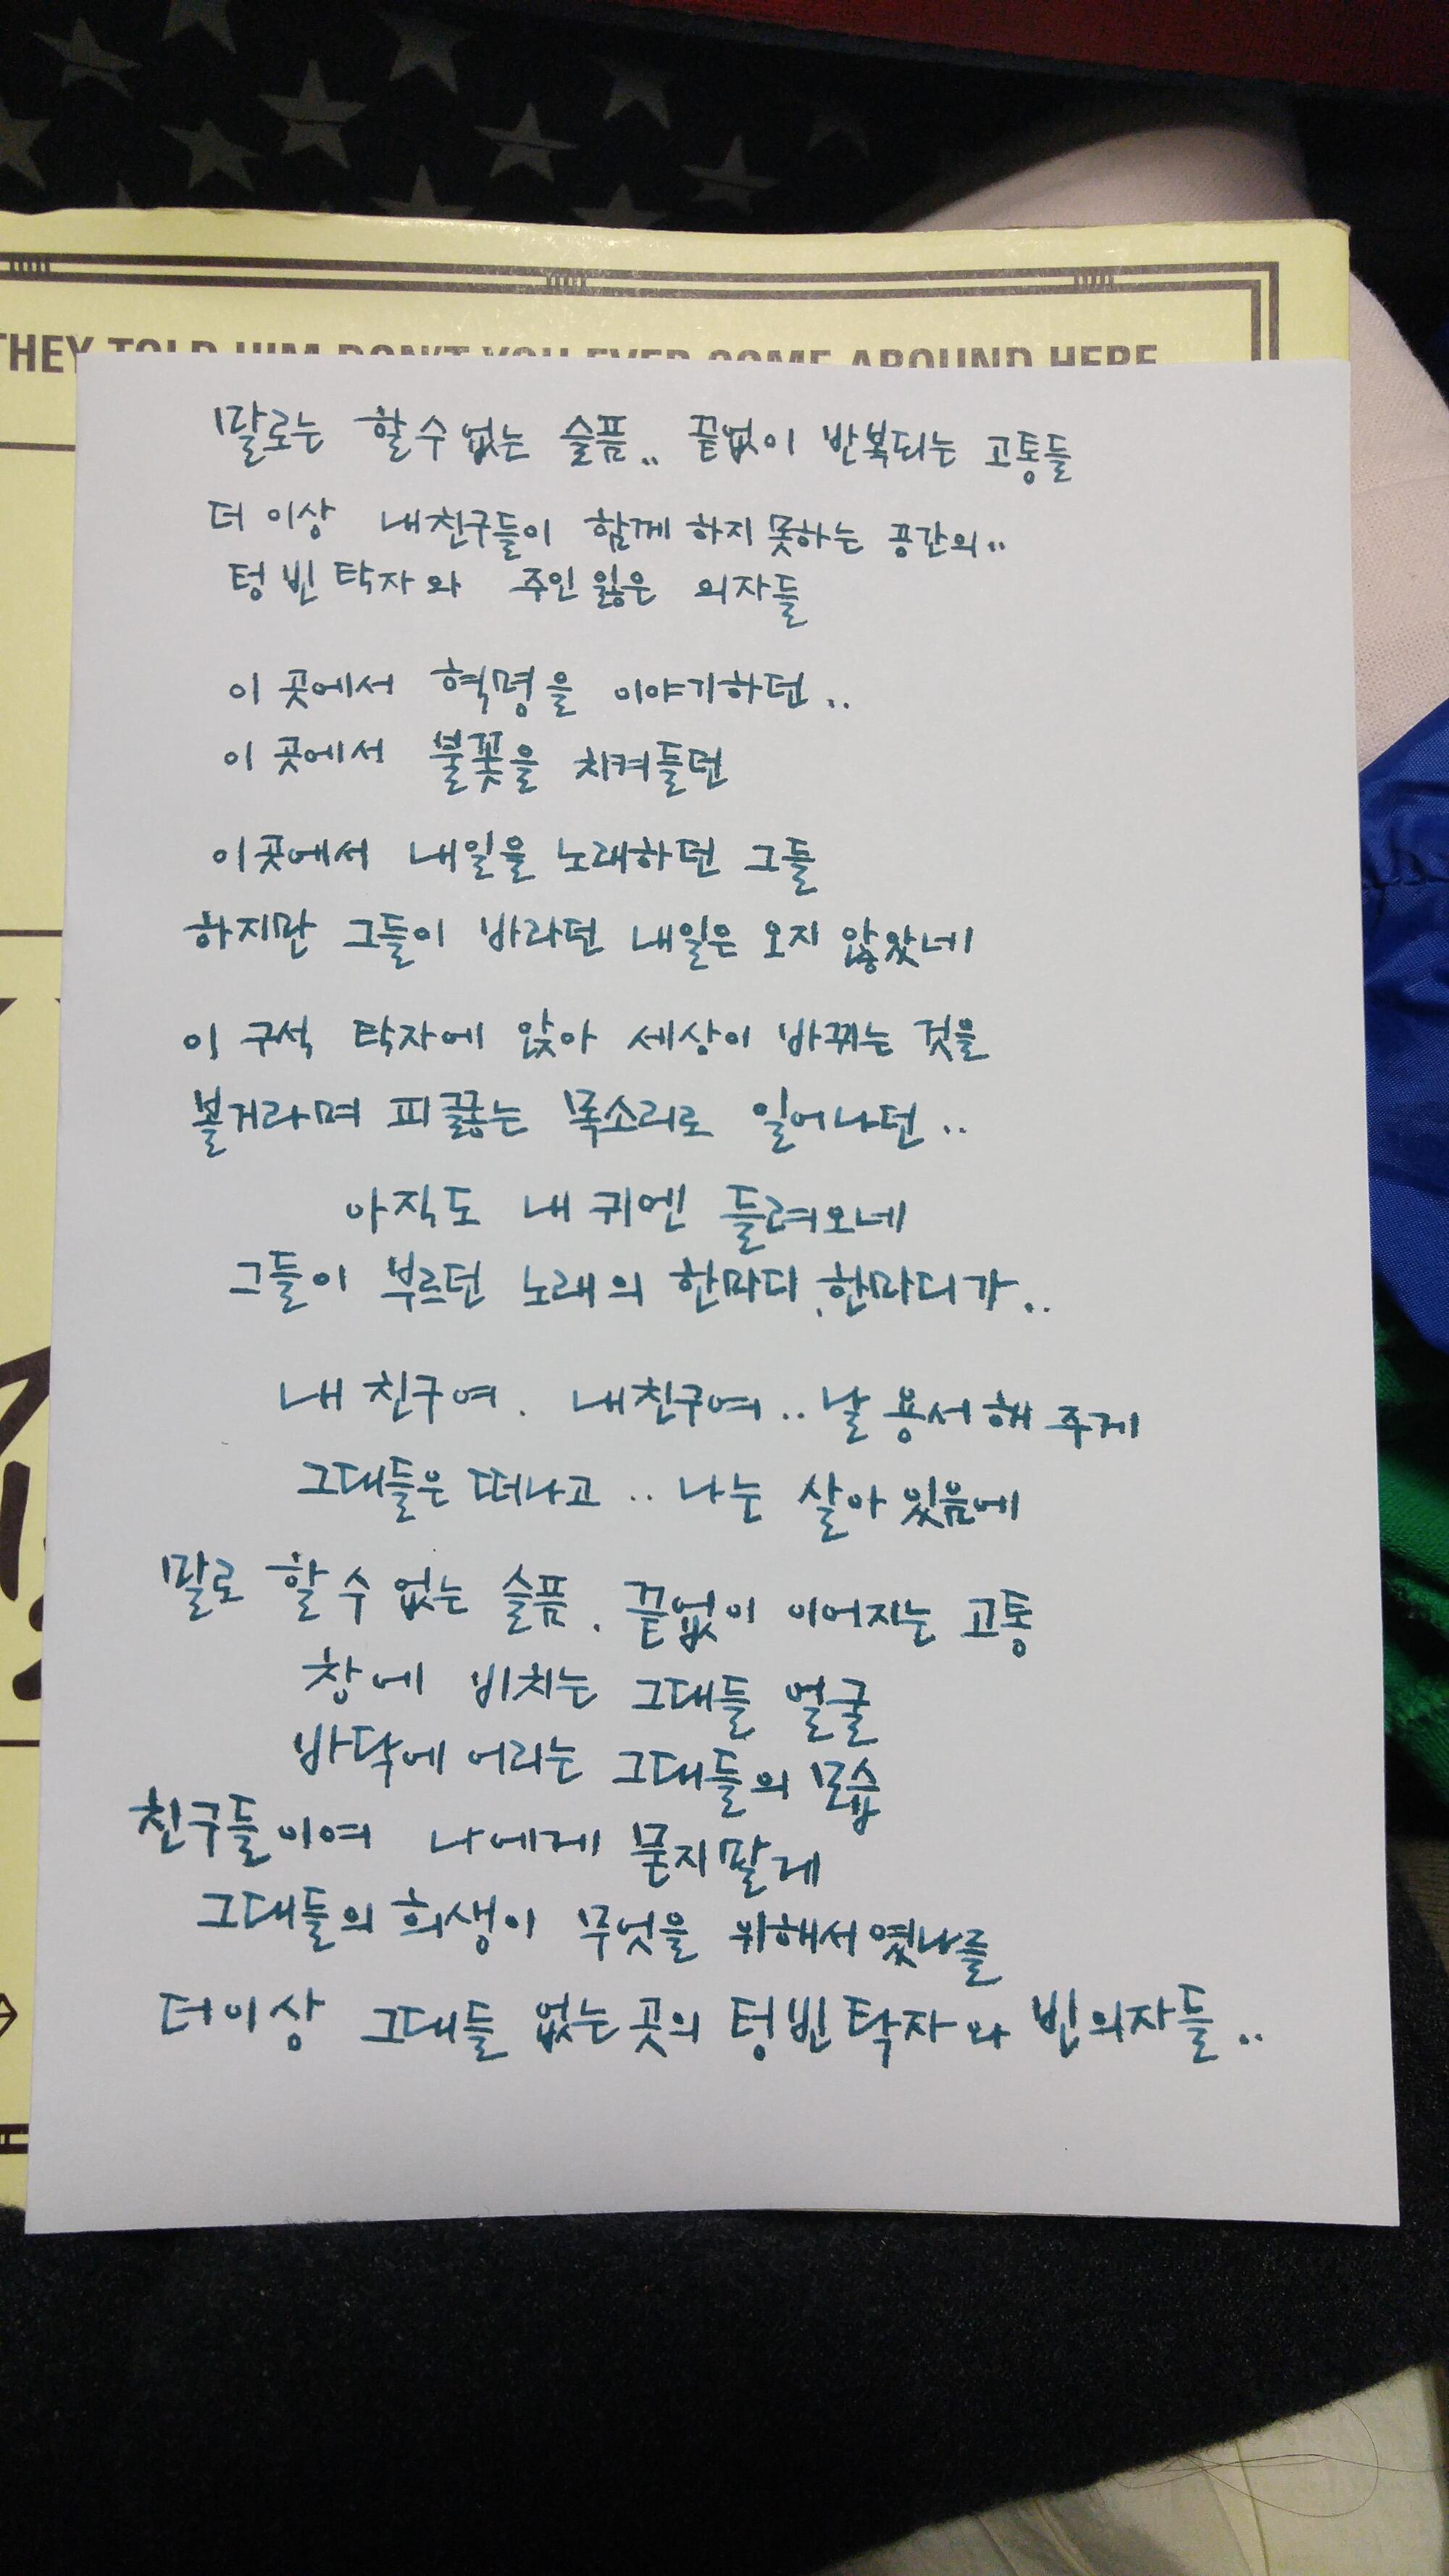 THEY TOLD HIM DON'T YOU EVER COME AROUND HERE
말로는 할 수 없는 슬픔.. 끝없이 반복되는 고통들
더 이상 내 친구들이 함께 하지 못하는 공간의..
텅 빈 탁자와 주인 잃은 의자들
이 곳에서 혁명을 이야기하던..
이 곳에서 불꽃을 치켜들던
이곳에서 내일을 노래하던 그들
하지만 그들이 바라던 내일은 오지 않았네
이 구석 탁자에 앉아 세상이 바뀌는 것을
볼거라며 피끓는 목소리로 일어나던..
아직도 내 귀엔 들려오네
그들이 부르던 노래의 한마디, 한마디가..
내 친구여. 내친구여.. 날 용서해 주게
그대들은 떠나고.. 나는 살아 있음에
말로 할 수 없는 슬픔. 끝없이 이어지는 고통
창에 비치는 그대들 얼굴
바닥에 어리는 그대들의 모습
친구들이여 나에게 묻지말게
그대들의 희생이 무엇을 위해서였나를
더이상 그대들 없는 곳의 텅빈 탁자와 빈 의자들..